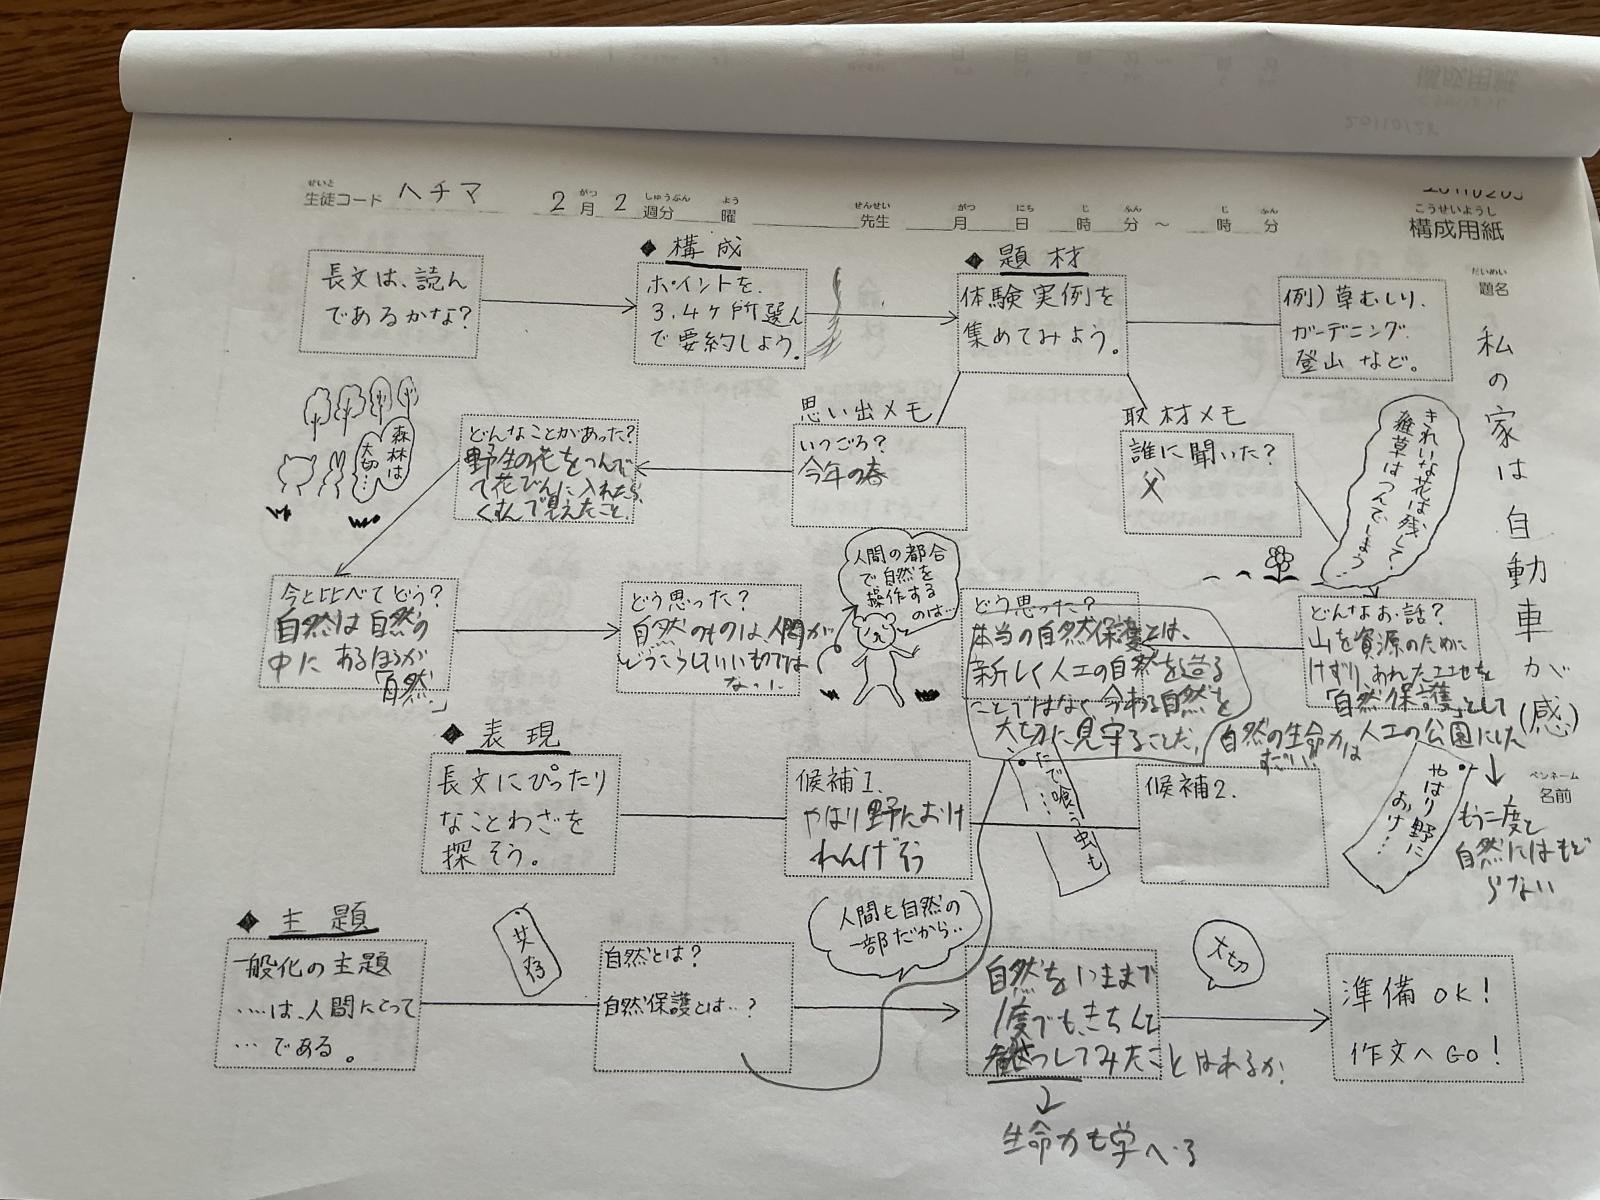 せいと
生徒コード ハチマ 2月 2週分 曜 先生 月 日 時 分 〜 時 分
こうせいようし
構成用紙
だいめい
題名
私の家は自動車が(感)
ペンネーム
名前
長文は、読ん
であるかな?
◆ 構成
ポイントを、
3.4ヶ所選ん
で要約しよう。
◆ 題材
体験実例を
集めてみよう。
例)草むしり、
ガーデニング、
登山など。
思い出メモ
いつごろ?
今年の春
取材メモ
誰に聞いた?
父
きれいな花は残して、
雑草はつんでしまう…
どんなことがあった?
野生の花をつんで
て花びんに入れたら、
くすんで見えたこと。
森林は
大切…
今と比べてどう?
自然は自然の
中にあるほうが
「自然」
どう思った?
自然のものは、人間が
どうこうしていいものでは
ない
人間の都合
で自然を
操作する
のは…
どう思った?
本当の自然保護とは、
新しく人工の自然を造る
ことではなく今ある自然を
大切に見守ることだ。
自然の生命力は
すごい
どんなお話?
山を資源のために
けずり、あれた土地を
「自然保護」として
人工の公園にした
もう二度と
自然にはもど
らない
◆ 表現
長文にぴったり
なことわざを
探そう。
候補1.
やはり野におけ
れんげそう
たで喰う虫も
…
候補2.
やはり野に
おけ…
◆ 主題
一般化の主題
……は、人間にとって
…である。
共存
自然とは?
自然保護とは…?
人間も自然の
一部だから…
自然をいままで
1度でも、きちんと
してみたことはあるか。
生命力も学べる
大切
準備OK!
作文へGO!